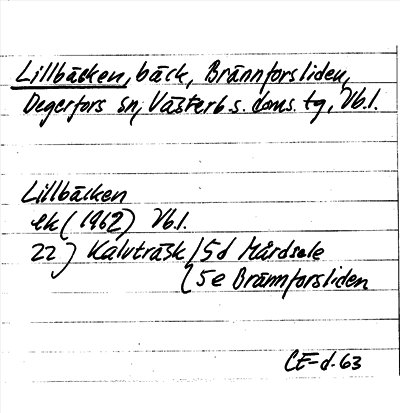 Lillbäcken, bäck, Brännforsliden,
Degerfors sn, Västerb s. doms. tg, Vb.l.
Lillbäcken
ek (1962) Vb.l.
22) Kalvträsk / 5d Mårdsele
( 5e Brännforsliden
CE-d. 63